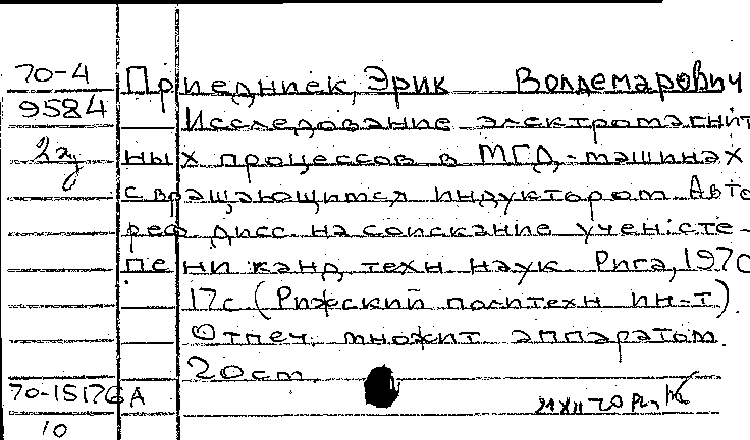 70-4 Приедниек, Эрик Волдемарович
9584 Исследование электромагнит
2 эк ных процессов в МГД-машинах
с вращающимся индуктором. Авто
реф. дисс. на соискание учен. сте-
пени канд. техн. наук. Рига, 1970
17с (Рижский политехн ин-т).
Отпеч. множит. аппаратом.
20 cm.
70-15176А
10